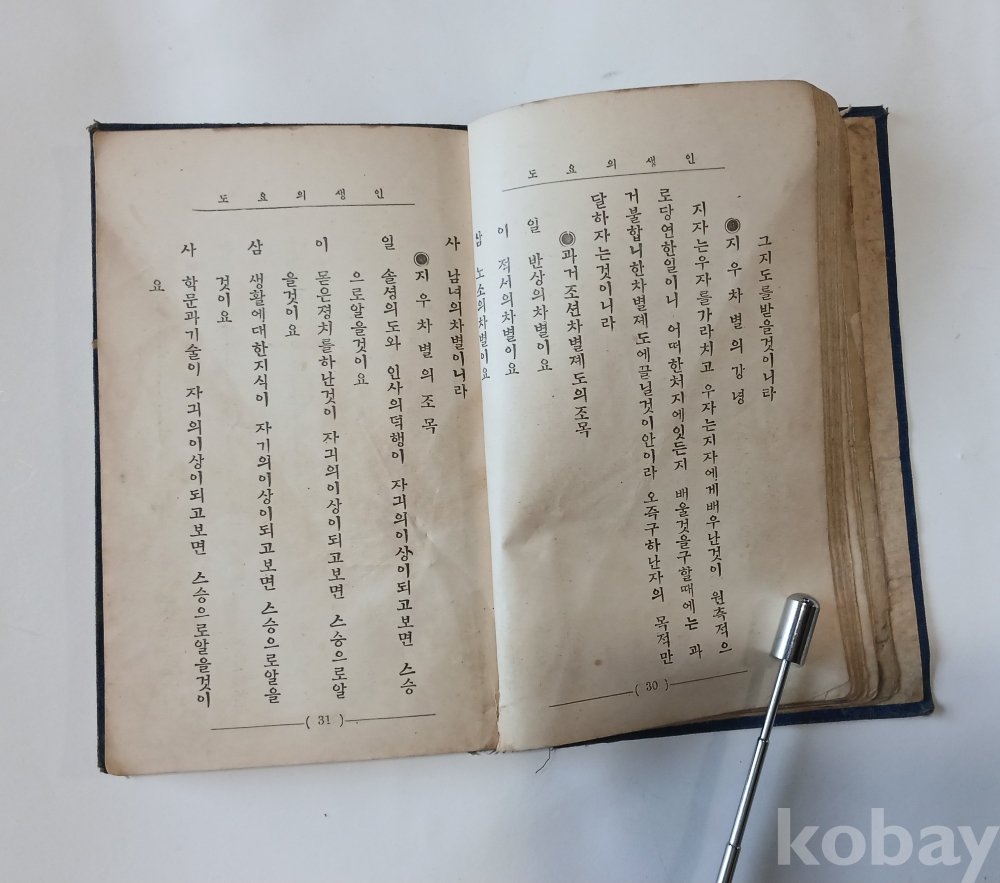 인생의요도
그지도를받을것이니라
◉지우차별의강녕
지자는우자를가라치고 우자는지자에게배우난것이 원측적으
로당연한일이니 어떠한처지에잇든지 배울것을구할때에는 과
거불합니한차별졔도에끌닐것이안이라 오즉구하난자의 목적만
달하자는것이니라
◉과거조션차별졔도의조목
일 반상의차별이요
이 적서의차별이요
삼 노소의차별이요
( 30 )
인생의요도
사 남녀의차별이니라
◉지우차별의조목
일 솔셩의도와 인사의덕행이 자긔의이상이되고보면 스승
으로알을것이요
이 몯은졍치를하난것이 자긔의이상이되고보면 스승으로알
을것이요
삼 생활에대한지식이 자기의이상이되고보면 스승으로알을
것이요
사 학문과기술이 자긔의이상이되고보면 스승으로알을것이
요
( 31 )
kobay